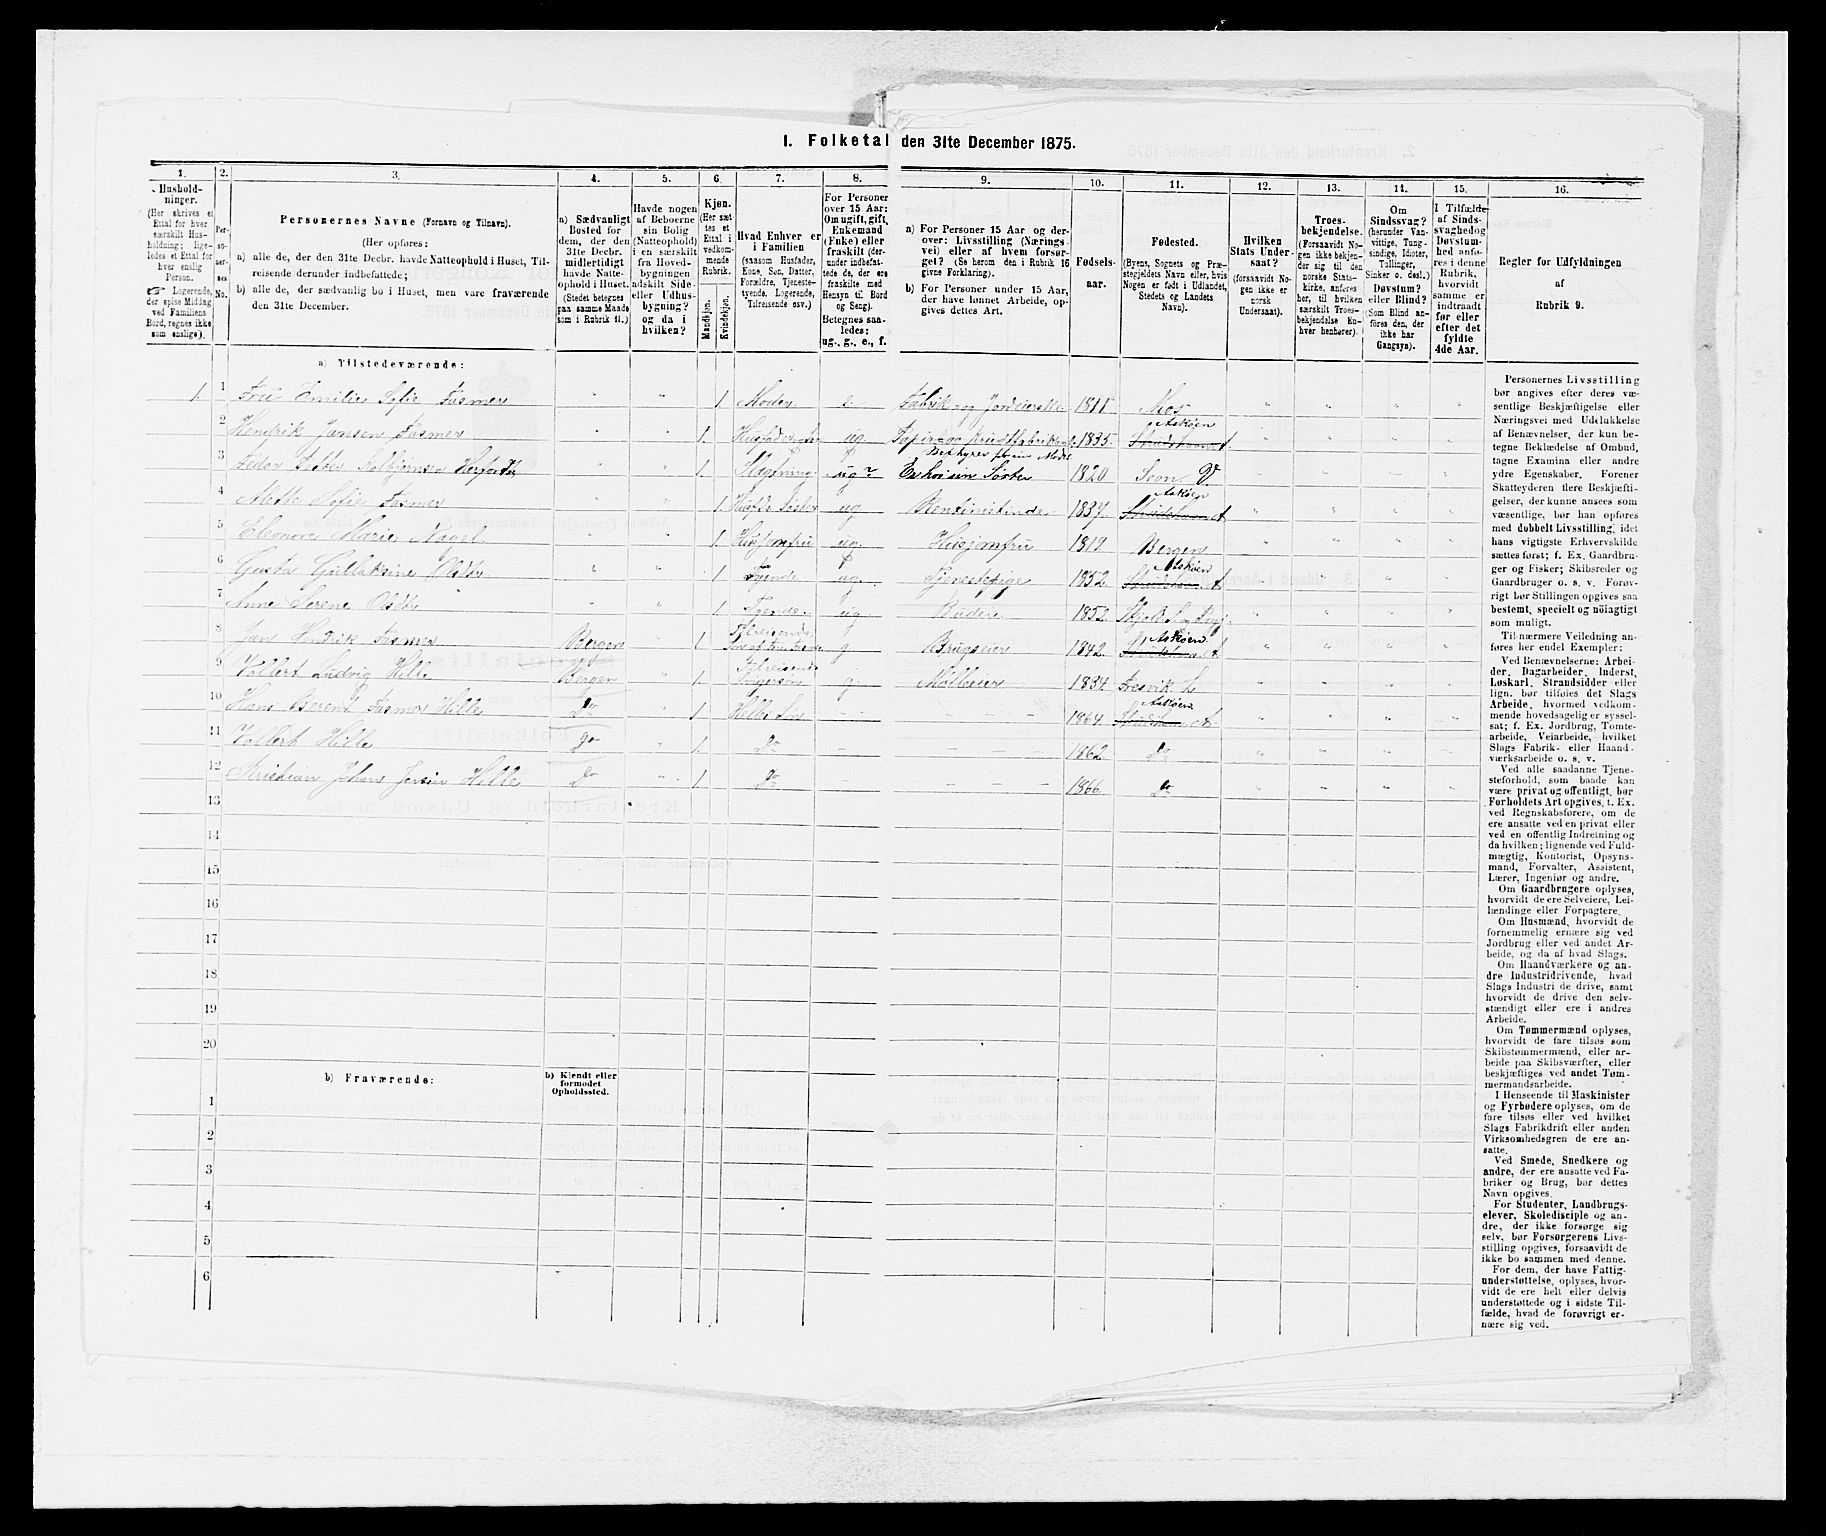 1. Folketal den 31te December 1875.
1. 2. 3. 4. 5. 6. 7. 8. 9. 10. 11. 12. 13. 14. 15. 16.
Husholdninger.
(Her skrives et
Ettal for hver
særskilt Husholdning;
ligeledes et Ettal for
hver enslig
Person.
Logerende,
der spise Middag
ved Familiens
Bord, regnes ikke
som enslige).
Personernes No.
Personernes Navne (Fornavn og Tilnavn).
(Her opføres:
a) alle de, der den 31te Decbr. havde Natteophold i Huset, Tilreisende derunder indbefattede;
b) alle de, der sædvanlig bo i Huset, men vare fraværende
den 31te December.
a) Sædvanligt
Bosted for
dem, der den
31te Decbr.
midlertidigt
havde Natteophold i Huset.
(Stedet betegnes
paa samme Maade
som i Rubrik 11.)
Havde nogen
af Beboerne
sin Bolig
(Natteophold)
i en særskilt
fra Hovedbygningen
adskilt Side- eller Udhusbygning?
og da i
hvilken?
Kjøn.
(Her sættes et
Ettal i
vedkommende
Rubrik.
Mandkjøn.
Kvindekjøn.
Hvad Enhver er
i Familien
(saasom Husfader,
Kone, Søn, Datter,
Forældre, Tjenestetyende, Logerende,
Tilreisende osv.)
For Personer
over 15 Aar:
Om ugift, gift,
Enkemand
(Enke) eller
fraskilt (derunder indbefattede de, der ere
fraskilte med
Hensyn til Bord
og Seng).
Betegnes saaledes:
ug., g., e., f.
a) For Personer 15 Aar og derover: Livsstilling (Næringsvei) eller af hvem forsørget? (Se herom den i Rubrik 16
givne Forklaring).
b) For Personer under 15 Aar,
der have lønnet Arbeide, opgives dettes Art.
Fødselsaar.
Fødested.
(Byens, Sognets og Præstegjeldets Navn eller, hvis
Nogen er født i Udlandet,
Stedets og Landets
Navn).
Hvilken
Stats Undersaat?
(forsaavidt Nogen ikke er
norsk
Undersaat).
Troesbekjendelse.
(Forsaavidt Nogen ikke bekjender sig til den
norske Statskirke, anføres
her, til hvilken
særskilt Troesbekjendelse Enhver henhører).
Om
Sindssvag?
(herunder Vanvittige, Tungsindige, Idioter,
Tullinger,
Sinker o. desl.)
Døvstum?
eller Blind?
(Som Blind anføres den, der
ikke har
Gangsyn).
I Tilfælde
af Sindssvaghed og
Døvstumhed anføres i denne
Rubrik,
hvorvidt
samme er
indtraadt
før eller
efter det
fyldte
4de Aar.
Regler for Udfyldningen
af
Rubrik 9.
a) Tilstedeværende:
1. 1 Fru Emilie Sofie Fasmer 1 Moder e Fabrik og Jordeierske 1811 Mes
2 Hendrik Jansen Fasmer 1. ug. 1835 Askøen
3 1. ug? 1820
4 Mette Sofie Fasmer 1 ug Rentinistinde 1837. Askøen
5 Eleonore Marie Nagel 1. Husjomfru ug. Husjomfru 1819 Bergen
6 Gusta Gullaksine Olsdtr 1 Tyende ug Tjenestepige 1852. Askøen
7 Anne Serene Olsdtr 1 Tyende ug. Budeie 1852
8 Jan Hendrik Fasmer Bergen 1 Tilreisende g Brugseier 1842. Askøen
9 Vollert Ludvig Hille Bergen 1. Tilreisende Svigersøn g. Mølleeier 1834 Fresvik L
10 Hans Berent Fasmer Hille Do 1 Hilles Søn 1864 Askøen
11 Vollert Hille Do 1 Do 1862 Do
12 Kristian Johan Jersin Hille Do 1 Do 1866. Do
13
14
15
16
17
18
19
20
b) Fraværende:
b) Kjendt eller
formodet
Opholdssted.
1
2
3
4
5
6
Personernes Livsstilling
bør angives efter deres væsentlige Beskjæftigelse eller
Næringsvei med Udelukkelse
af Benævnelser, der kun betegne Beklædelse af Ombud,
tagne Examina eller andre
ydre Egenskaber. Forener
Skatteyderen flere Beskjæftigelser, der kunne ansees som
væsentlige, bør han opføres
med dobbelt Livsstilling, idet
hans vigtigste Erhvervskilde
sættes først; f. Ex. Gaardbruger og Fisker; Skibsreder og
Gaardbruger o. s. v. Forøvrigt bør Stillingen opgives saa
bestemt, specielt og nöiagtigt
som muligt.
Til nærmere Veiledning anføres her endel Exempler:
Ved Benævnelserne: Arbeider, Dagarbeider, Inderst,
Løskarl, Strandsidder eller
lign. bør tilføies det Slags
Arbeide, hvormed vedkommende hovedsagelig er sysselsat; f. Ex. Jordbrug, Tomtearbeide, Veiarbeide, hvilket
Slags Fabrik- eller Haandværksarbeide o. s. v.
Ved alle saadanne Tjenesteforhold, som baade kan
være privat og offentligt, bør
Forholdets Art opgives, t. Ex.
ved Regnskabsførere, om de
ere ansatte ved en privat eller
ved en offentlig Indretning og
da hvilken; lignende ved Fuldmægtig, Kontorist, Opsynsmand, Forvalter, Assistent,
Lærer, Ingeniør og andre.
Om Gaardbrugere oplyses,
hvorvidt de ere Selveiere, Leilændinge eller Forpagtere.
Om Husmænd, hvorvidt de
fornemmelig ernære sig ved
Jordbrug eller ved andet Arbeide, og da af hvad Slags.
Om Haandværkere og andre Industridrivende, hvad
Slags Industri de drive, samt
hvorvidt de drive den selvstændigt eller ere i andres
Arbeide.
Om Tømmermænd oplyses,
hvorvidt de fare tilsøs som
Skibstømmermænd, eller arbeide paa Skibsværfter, eller
beskjæftiges ved andet Tømmermandsarbeide.
I Henseende til Maskinister
og Fyrbødere oplyses, om de
fare tilsøs eller ved hvilket
Slags Fabrikdrift eller anden
Virksomhedsgren de ere ansatte.
Ved Smede, Snedkere og
andre, der ere ansatte ved Fabriker og Brug, bør dettes
Navn opgives.
For Studenter, Landbrugselever, Skoledisciple og andre, der ikke forsørge sig
selv, bør Forsørgerens Livsstilling opgives, forsaavidt de
ikke bo sammen med denne.
For dem, der have Fattigunderstøttelse, oplyses, hvorvidt de ere helt eller delvis
understøttede og i sidste Tilfælde, hvad de forøvrigt ernære sig ved.